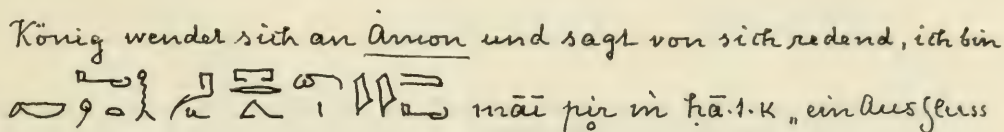 König wendet sich an Amon und sagt von sich redend, ich bin
māi pir in ḥā.t.k „ein Ausfluss